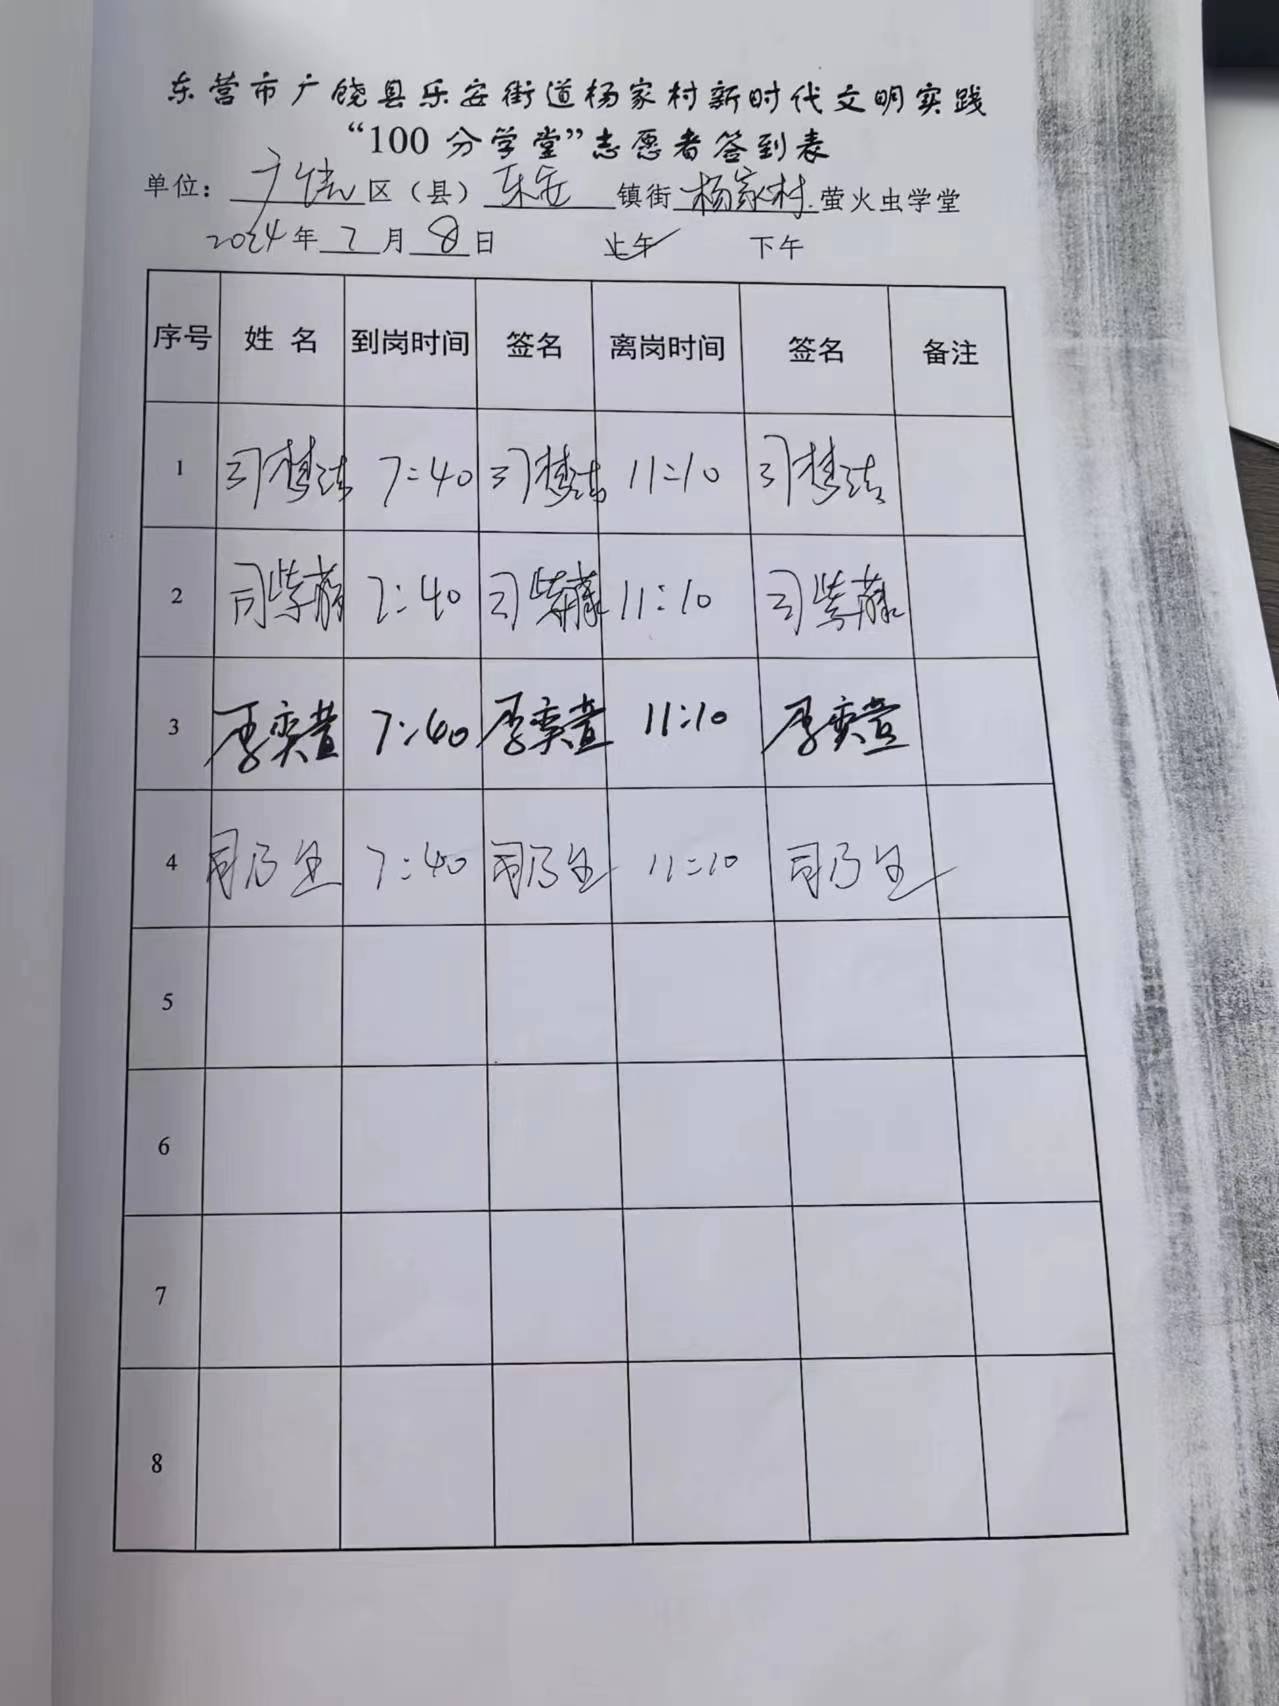 东营市广饶县乐安街道杨家村新时代文明实践
“100分学堂”志愿者签到表
单位：广饶区（县）乐安镇街杨家村萤火虫学堂
2024年7月8日 上午 下午
序号 姓名 到岗时间 签名 离岗时间 签名 备注
1 司梦洁 7:40 司梦洁 11:10 司梦洁
2 司紫藤 7:40 司紫藤 11:10 司紫藤
3 李奕萱 7:40 李奕萱 11:10 李奕萱
4 司乃生 7:40 司乃生 11:10 司乃生
5
6
7
8